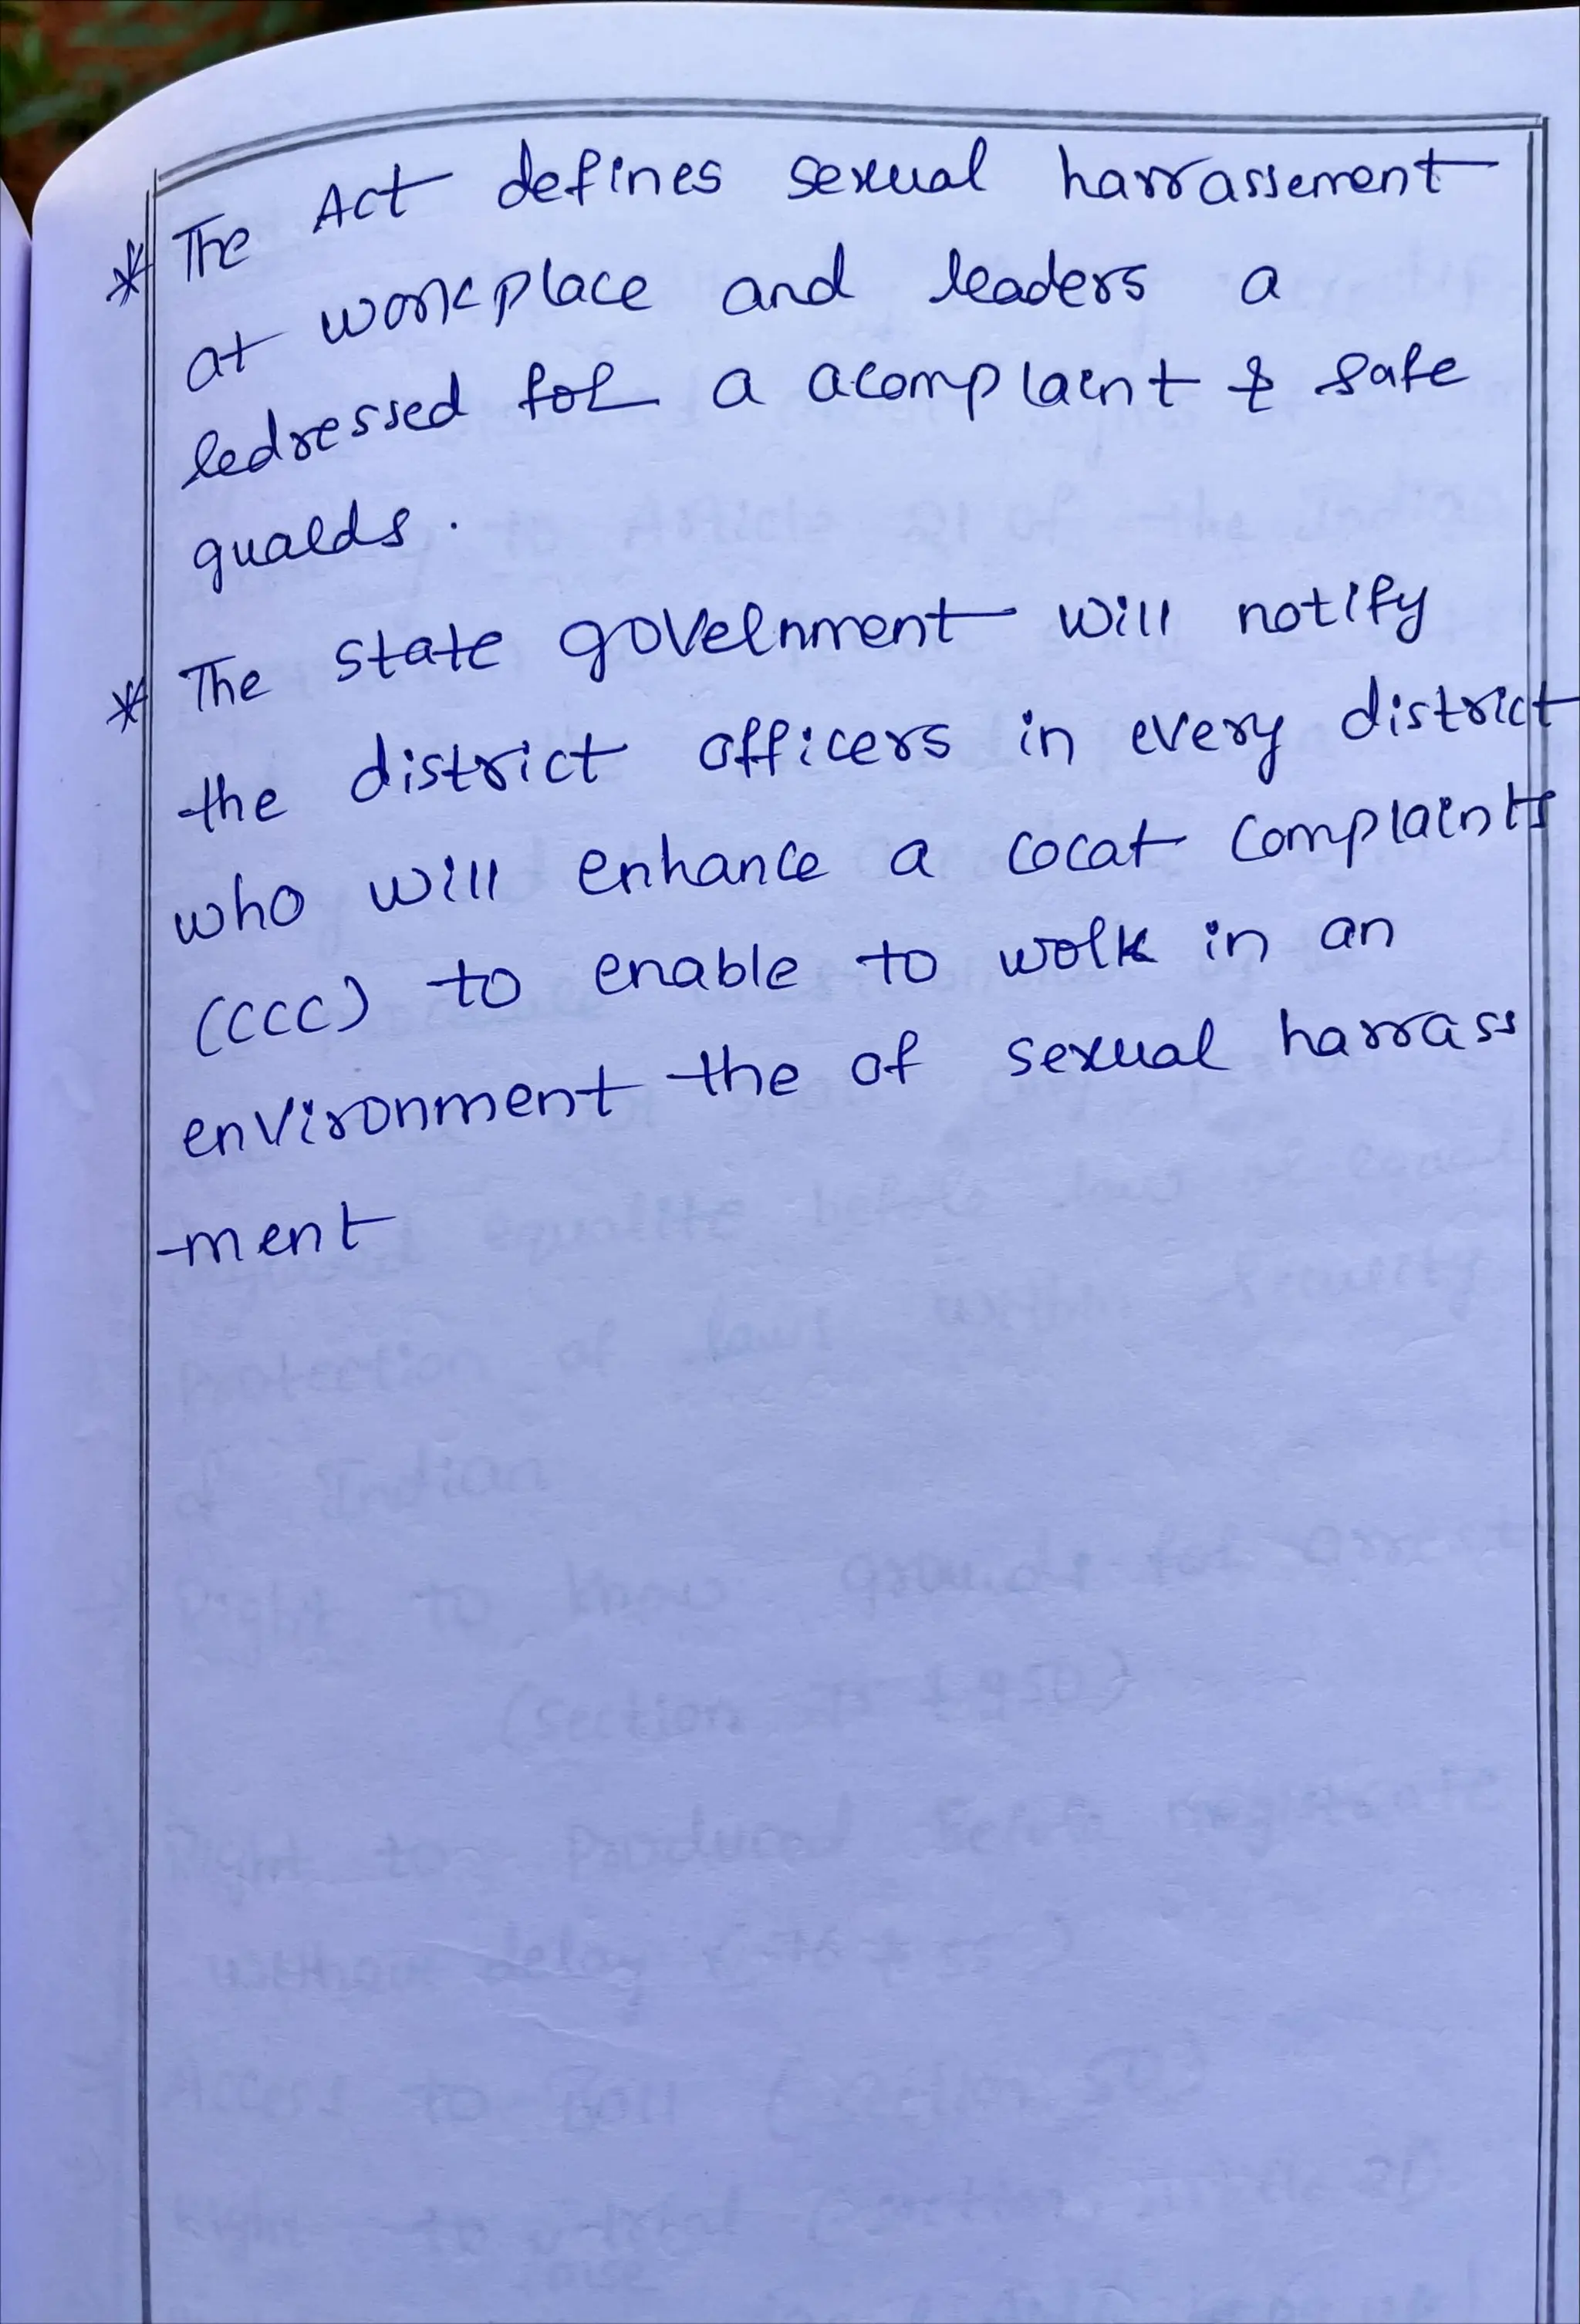 * The Act defines sexual harrassement
at workplace and leaders a
ledressed fol a acomplaint & safe
gualds.
* The state govelnment will notify
the district officers in every district
who will enhance a cocat complaints
(CCCC) to enable to wolk in an
environment the of sexual harrass
-ment